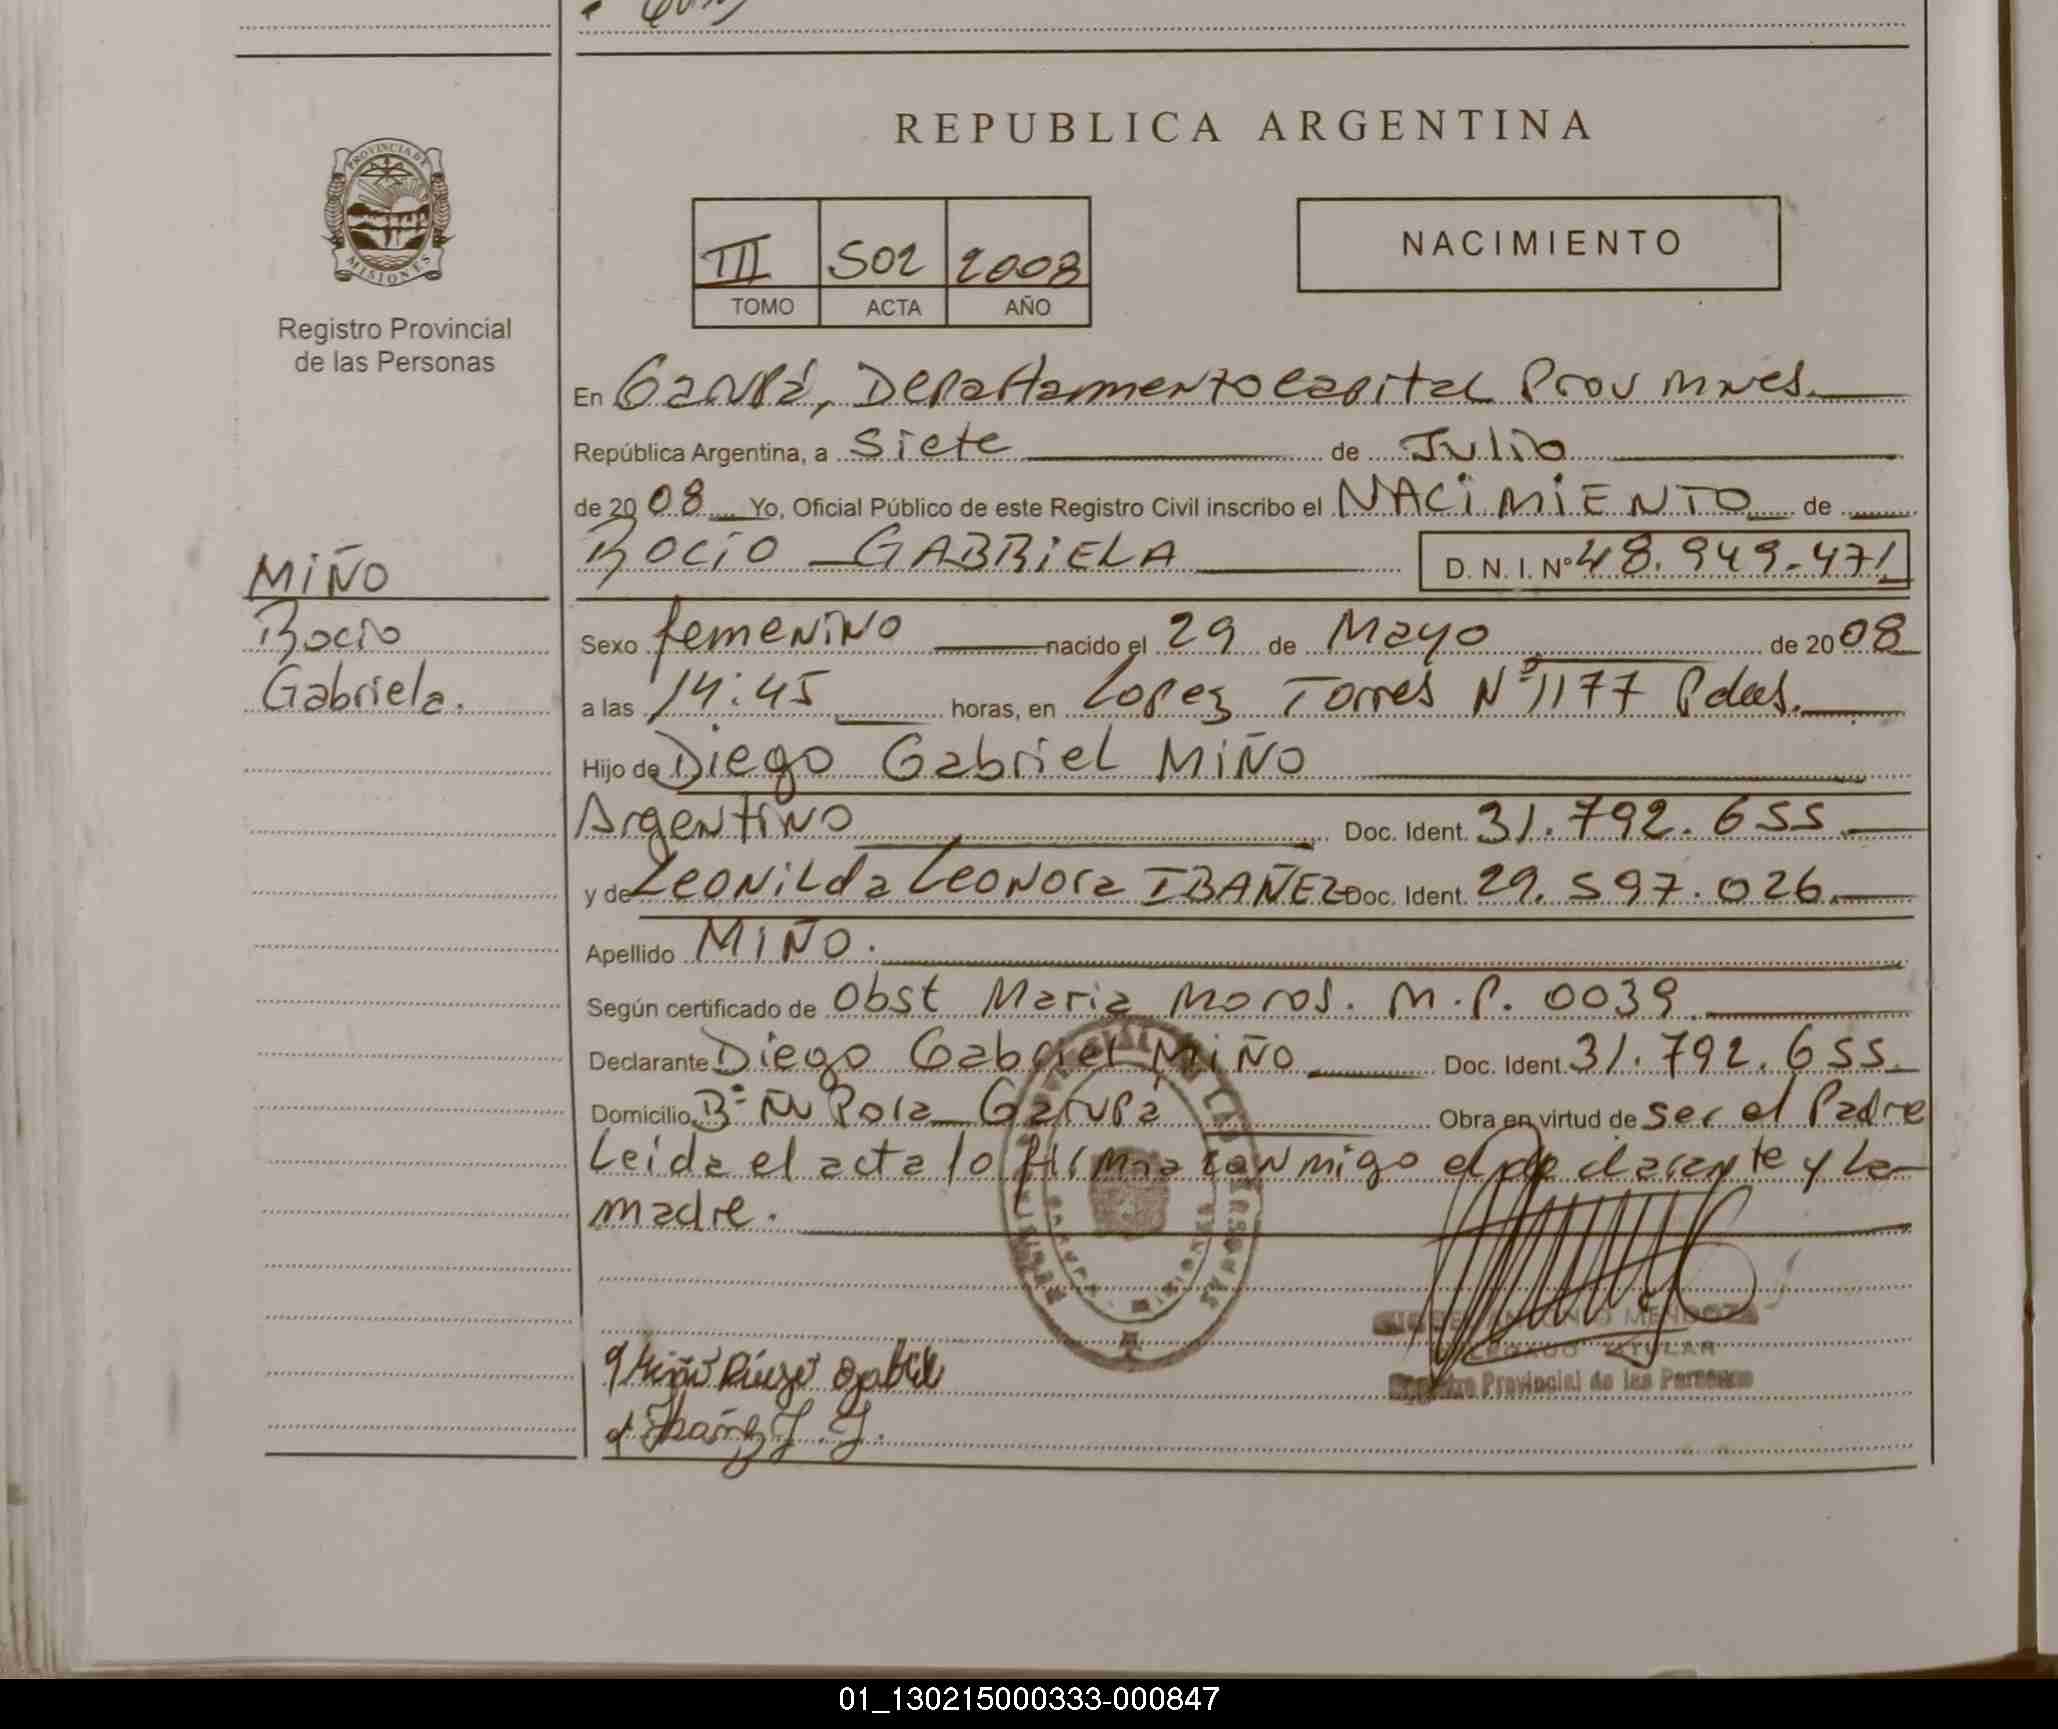 PROVINCIA DE
MISIONES
Registro Provincial
de las Personas
REPUBLICA ARGENTINA
III 502 2008
TOMO ACTA AÑO
NACIMIENTO
En Garupá, Departamento Capital Prov Mnes.
República Argentina, a Siete de Julio
de 2008 Yo, Oficial Público de este Registro Civil inscribo el NACIMIENTO de
ROCIO GABRIELA D. N. I. Nº 48.949.471
MIÑO
Rocio
Gabriela.
Sexo femenino nacido el 29 de Mayo de 2008
a las 14:45 horas, en Lopez Torres Nº 1177 Pdas.
Hijo de Diego Gabriel MIÑO
Argentino Doc. Ident. 31.792.655
y de Leonilda Leonora IBAÑEZ Doc. Ident. 29.597.026
Apellido MIÑO.
Según certificado de Obst Maria Moros. M.P. 0039
Declarante Diego Gabriel MIÑO Doc. Ident. 31.792.655.
Domicilio Bº Ñu Pora Garupá Obra en virtud de ser el Padre
Leida el acta lo firma conmigo el declarante y la
madre.
MENDOZA
TITULAR
Registro Provincial de las Personas
Miño Diego Gabriel
Ibañez
01_130215000333-000847